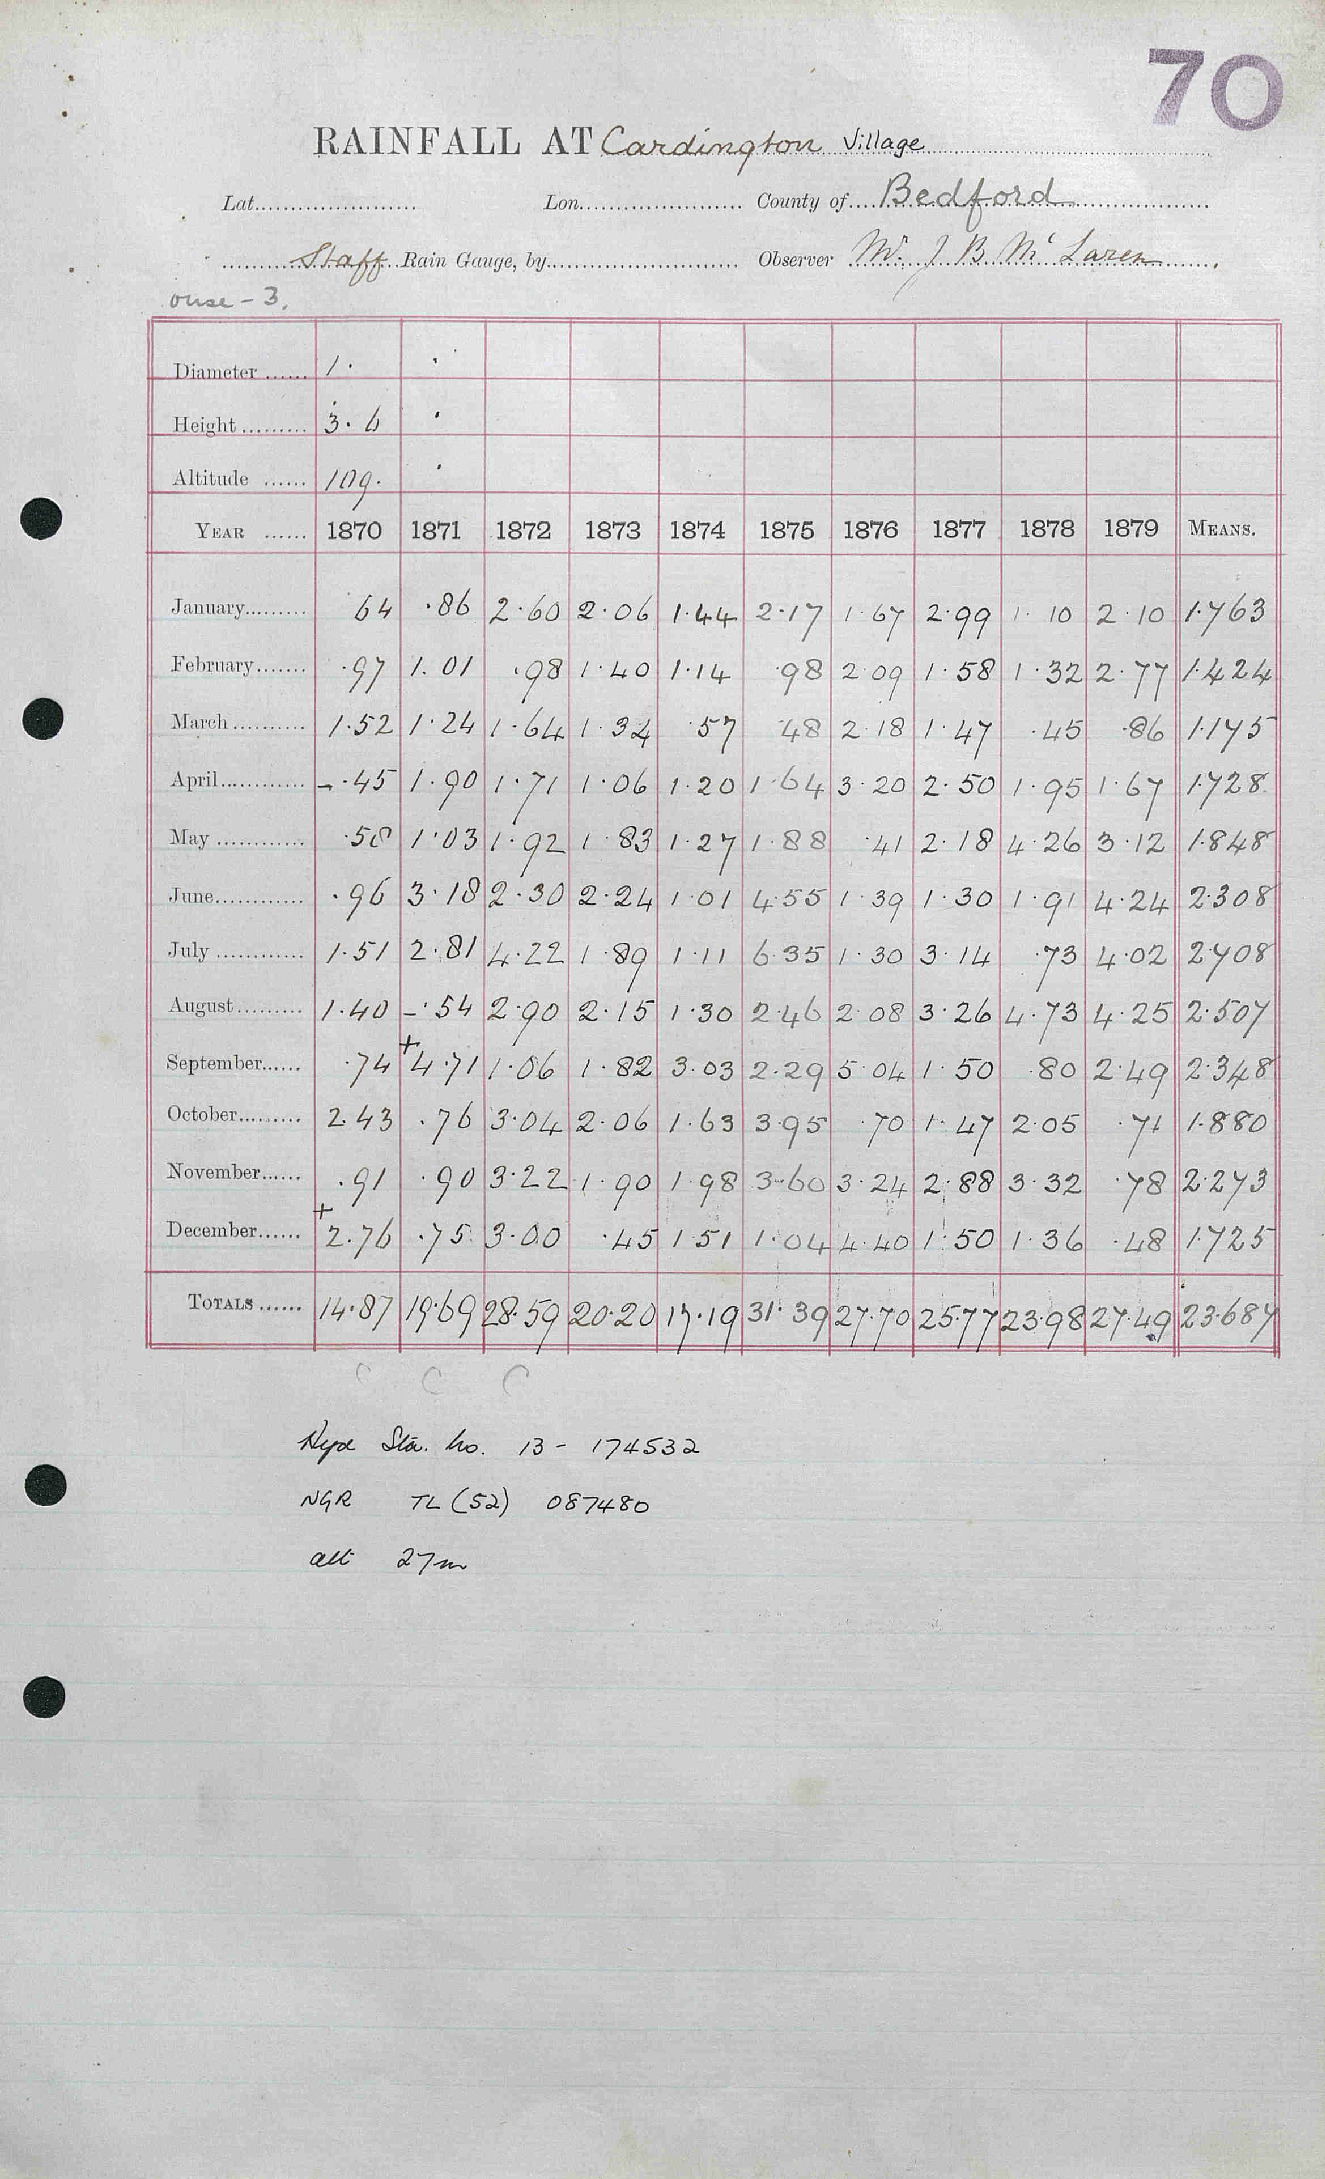 70
RAINFALL AT Cardington Village
Lat. Lon. County of Bedford
Staff Rain Gauge, by Observer Mr. J B McLaren
ouse - 3.
Diameter 1.
Height 3.6
Altitude 109.
YEAR 1870 1871 1872 1873 1874 1875 1876 1877 1878 1879 MEANS.
January 64 .86 2.60 2.06 1.44 2.17 1.67 2.99 1.10 2.10 1.763
February .97 1.01 .98 1.40 1.14 .98 2.09 1.58 1.32 2.77 1.424
March 1.52 1.24 1.64 1.34 .57 48 2.18 1.47 .45 .86 1.175
April - .45 1.90 1.71 1.06 1.20 1.64 3.20 2.50 1.95 1.67 1.728
May .58 1.03 1.92 1.83 1.27 1.88 .41 2.18 4.26 3.12 1.848
June .96 3.18 2.30 2.24 1.01 4.55 1.39 1.30 1.91 4.24 2.308
July 1.51 2.81 4.22 1.89 1.11 6.35 1.30 3.14 .73 4.02 2.708
August 1.40 - .54 2.90 2.15 1.30 2.46 2.08 3.26 4.73 4.25 2.507
September .74 +4.71 1.06 1.82 3.03 2.29 5.04 1.50 .80 2.49 2.348
October 2.43 .76 3.04 2.06 1.63 3.95 .70 1.47 2.05 .71 1.880
November .91 .90 3.22 1.90 1.98 3.60 3.24 2.88 3.32 .78 2.273
December +2.76 .75 3.00 .45 1.51 1.04 4.40 1.50 1.36 .48 1.725
TOTALS 14.87 19.69 28.59 20.20 17.19 31.39 27.70 25.77 23.98 27.49 23.687
C C C
Hyd Sta. No. 13 - 174532
NGR TL (52) 087480
alt 27m